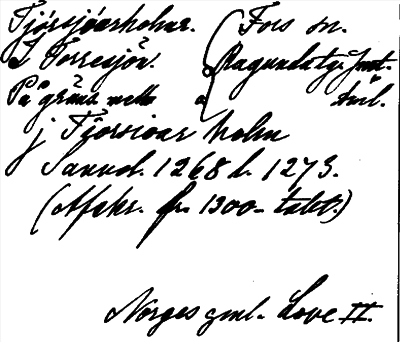 Fjörsjöarholmr. Fors sn.
I Torresjön. Ragunda tg. Jmt.
På gräns mellan o. Ånd.
j Fiorsioar holm
Sannol. 1268 l. 1273.
(Afskr. fr. 1300-talet.)
Norges gml. Love II.